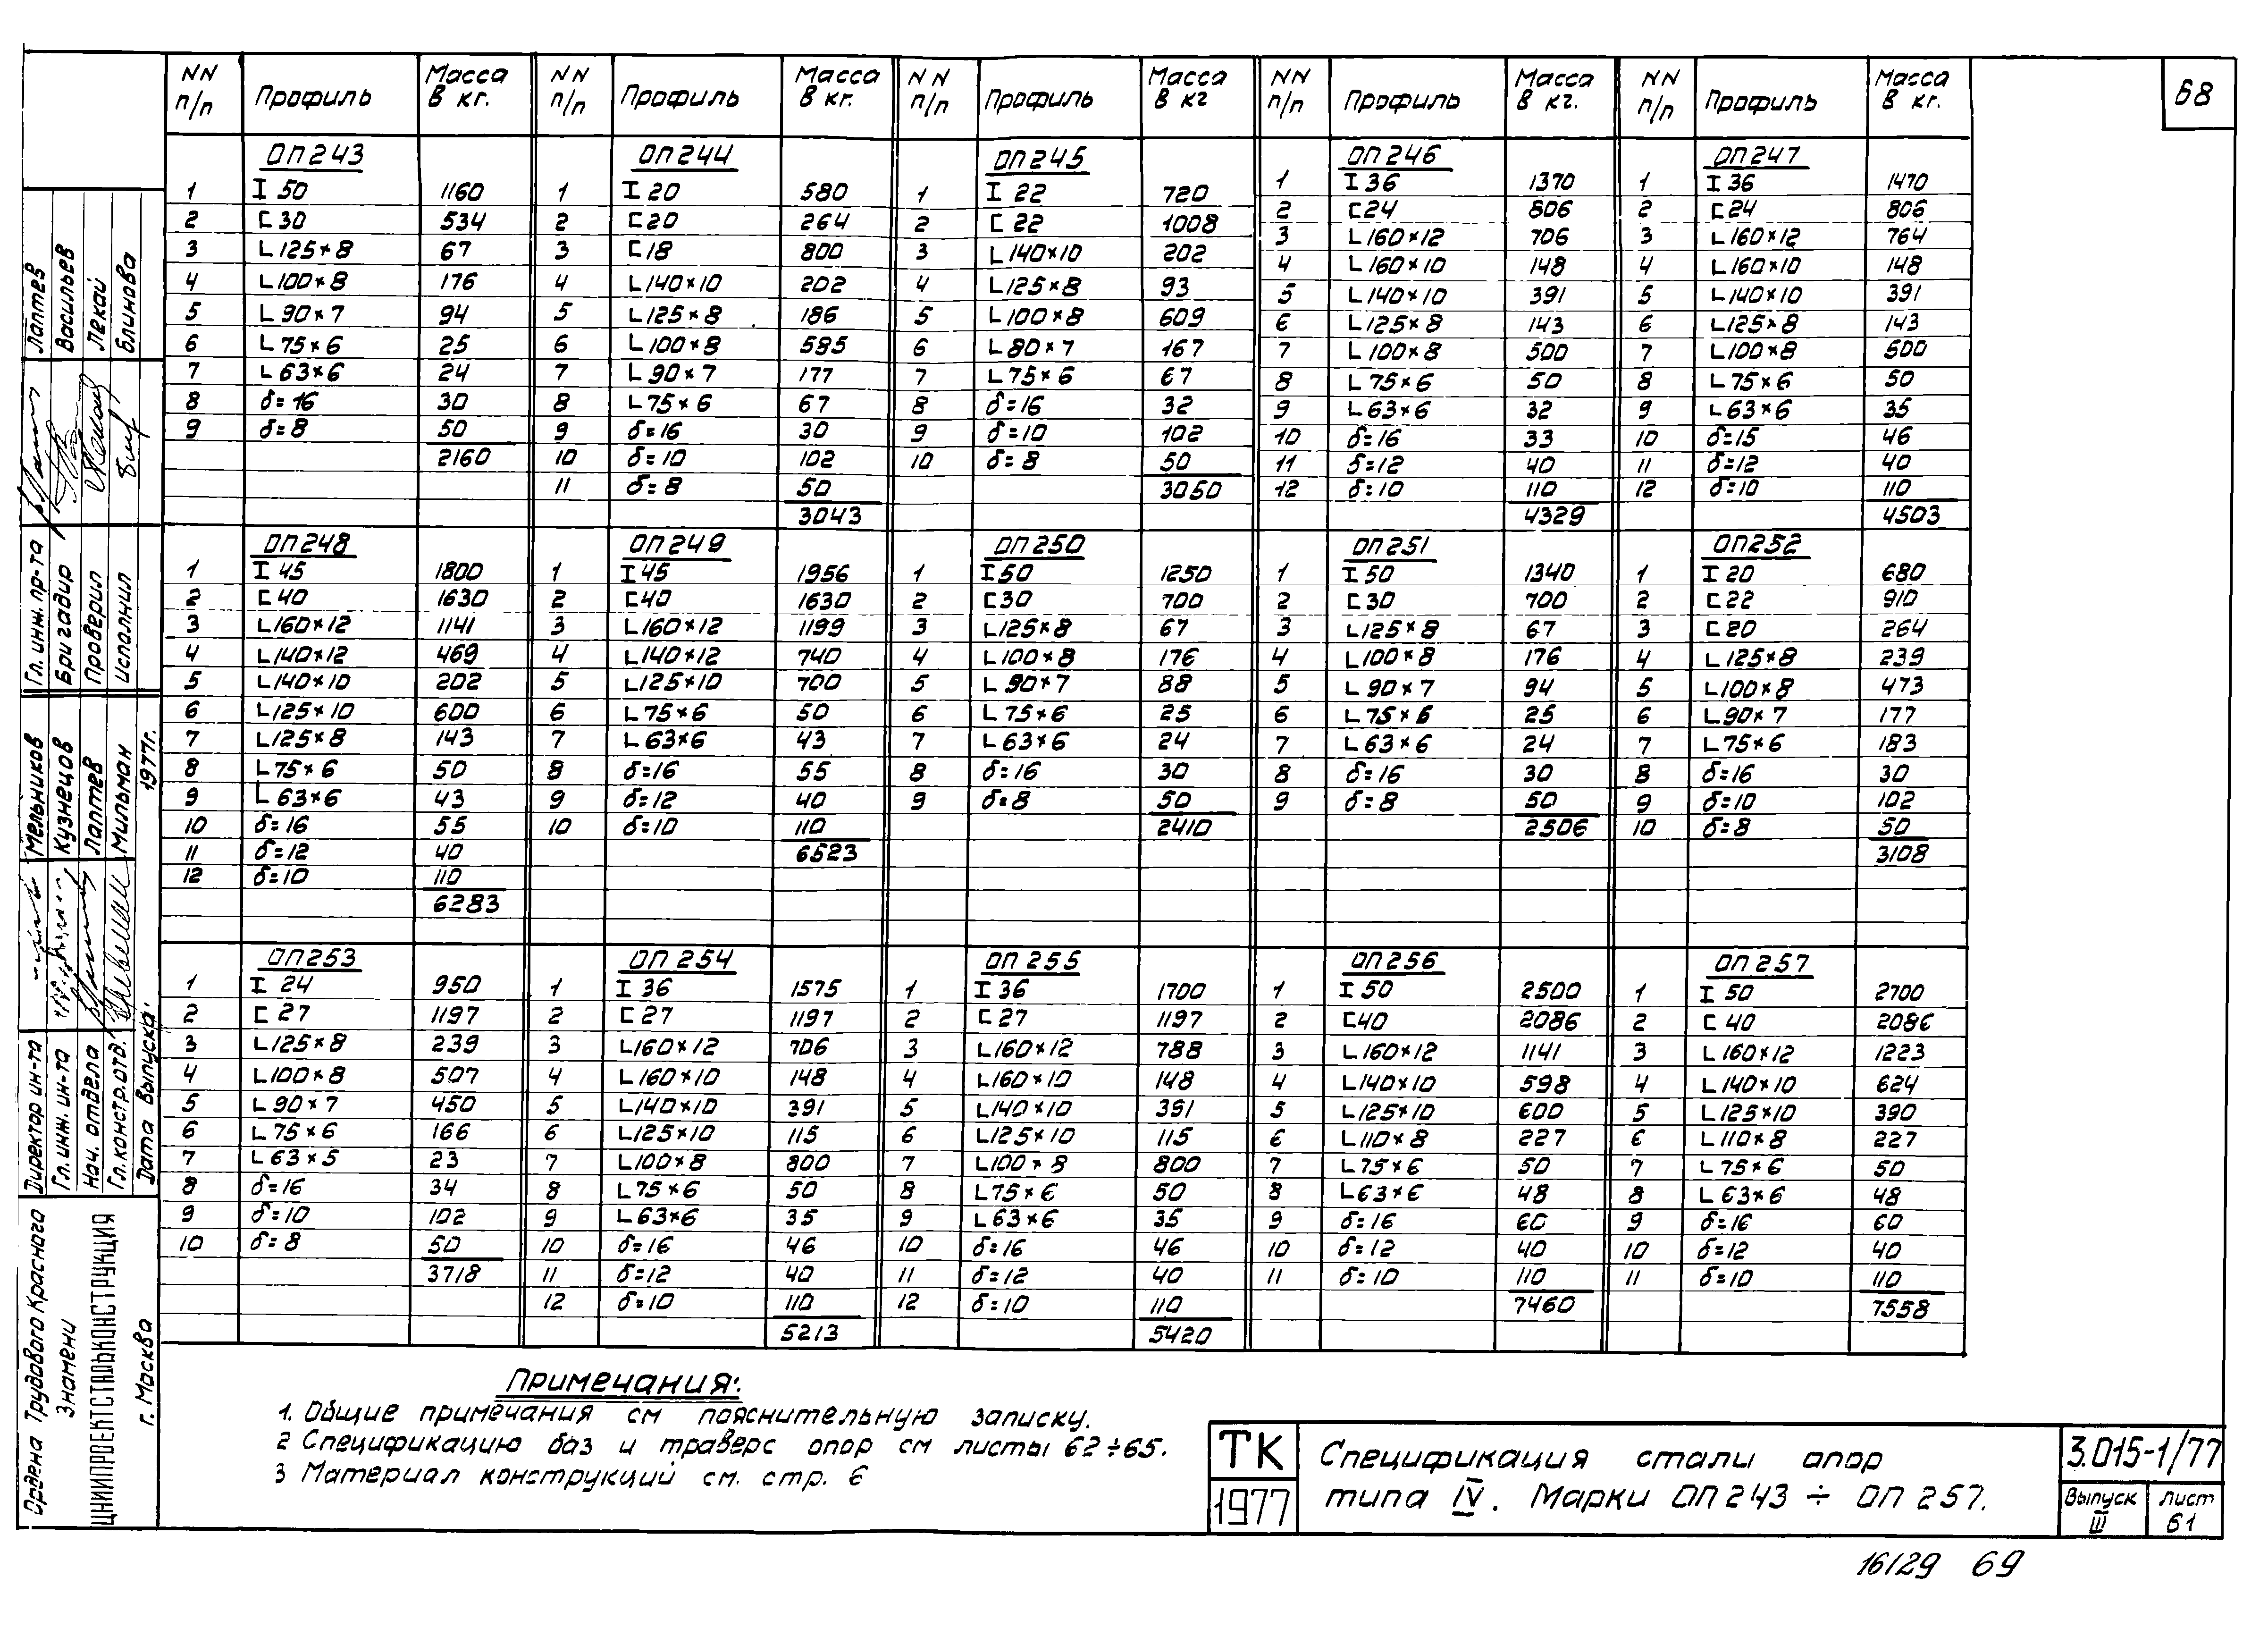 68
NN п/п Профиль Масса в кг. NN п/п Профиль Масса в кг. NN п/п Профиль Масса в кг NN п/п Профиль Масса в кг. NN п/п Профиль Масса в кг.
ОП243
1 I 50 1160
2 [ 30 534
3 L125×8 67
4 L100×8 176
5 L90×7 94
6 L75×6 25
7 L63×6 24
8 δ=16 30
9 δ=8 50
2160
ОП244
1 I 20 580
2 [20 264
3 [18 800
4 L140×10 202
5 L125×8 186
6 L100×8 585
7 L90×7 177
8 L75×6 67
9 δ=16 30
10 δ=10 102
11 δ=8 50
3043
ОП245
1 I 22 720
2 [ 22 1008
3 L140×10 202
4 L125×8 93
5 L100×8 609
6 L80×7 167
7 L75×6 67
8 δ=16 32
9 δ=10 102
10 δ=8 50
3050
ОП246
1 I 36 1370
2 [24 806
3 L160×12 706
4 L160×10 148
5 L140×10 391
6 L125×8 143
7 L100×8 500
8 L75×6 50
9 L63×6 32
10 δ=16 33
11 δ=12 40
12 δ=10 110
4329
ОП247
1 I 36 1470
2 [24 806
3 L160×12 764
4 L160×10 148
5 L140×10 391
6 L125×8 143
7 L100×8 500
8 L75×6 50
9 L63×6 35
10 δ=15 46
11 δ=12 40
12 δ=10 110
4503
ОП248
1 I 45 1800
2 [ 40 1630
3 L160×12 1141
4 L140×12 469
5 L140×10 202
6 L125×10 600
7 L125×8 143
8 L75×6 50
9 L63×6 43
10 δ=16 55
11 δ=12 40
12 δ=10 110
6283
ОП249
1 I 45 1956
2 [40 1630
3 L160×12 1199
4 L140×12 740
5 L125×10 700
6 L75×6 50
7 L63×6 43
8 δ=16 55
9 δ=12 40
10 δ=10 110
6523
ОП250
1 I 50 1250
2 [30 700
3 L125×8 67
4 L100×8 176
5 L90×7 88
6 L75×6 25
7 L63×6 24
8 δ=16 30
9 δ=8 50
2410
ОП251
1 I 50 1340
2 [30 700
3 L125×8 67
4 L100×8 176
5 L90×7 94
6 L75×6 25
7 L63×6 24
8 δ=16 30
9 δ=8 50
2506
ОП252
1 I 20 680
2 [22 910
3 [20 264
4 L125×8 239
5 L100×8 473
6 L90×7 177
7 L75×6 183
8 δ=16 30
9 δ=10 102
10 δ=8 50
3108
ОП253
1 I 24 950
2 [ 27 1197
3 L125×8 239
4 L100×8 507
5 L90×7 450
6 L75×6 166
7 L63×5 23
8 δ=16 34
9 δ=10 102
10 δ=8 50
3718
ОП254
1 I 36 1575
2 [ 27 1197
3 L160×12 706
4 L160×10 148
5 L140×10 391
6 L125×10 115
7 L100×8 800
8 L75×6 50
9 L63×6 35
10 δ=16 46
11 δ=12 40
12 δ=10 110
5213
ОП255
1 I 36 1700
2 [ 27 1197
3 L160×12 788
4 L160×10 148
5 L140×10 391
6 L125×10 115
7 L100×8 800
8 L75×6 50
9 L63×6 35
10 δ=16 46
11 δ=12 40
12 δ=10 110
5420
ОП256
1 I 50 2500
2 [40 2086
3 L160×12 1141
4 L140×10 598
5 L125×10 600
6 L110×8 227
7 L75×6 50
8 L63×6 48
9 δ=16 60
10 δ=12 40
11 δ=10 110
7460
ОП257
1 I 50 2700
2 [ 40 2086
3 L160×12 1223
4 L140×10 624
5 L125×10 390
6 L110×8 227
7 L75×6 50
8 L63×6 48
9 δ=16 60
10 δ=12 40
11 δ=10 110
7558
Примечания:
1. Общие примечания см пояснительную записку.
2 Спецификацию баз и траверс опор см листы 62÷65.
3 Материал конструкций см. стр. 6
ТК
1977
Спецификация стали опор
типа IV. Марки ОП243 ÷ ОП257.
3.015-1/77
Выпуск III
Лист 61
16129 69
Гл. инж. пр-та Лаптев
Бригадир Васильев
Проверил Лекай
Исполнил Блинова
Директор ин-та Мельников
Гл. инж. ин-та Кузнецов
Нач. отдела Лаптев
Гл. констр. отд. Мильман
Дата выпуска. 1977г.
Ордена Трудового Красного
Знамени
ЦНИИПРОЕКТСТАЛЬКОНСТРУКЦИЯ
г. Москва